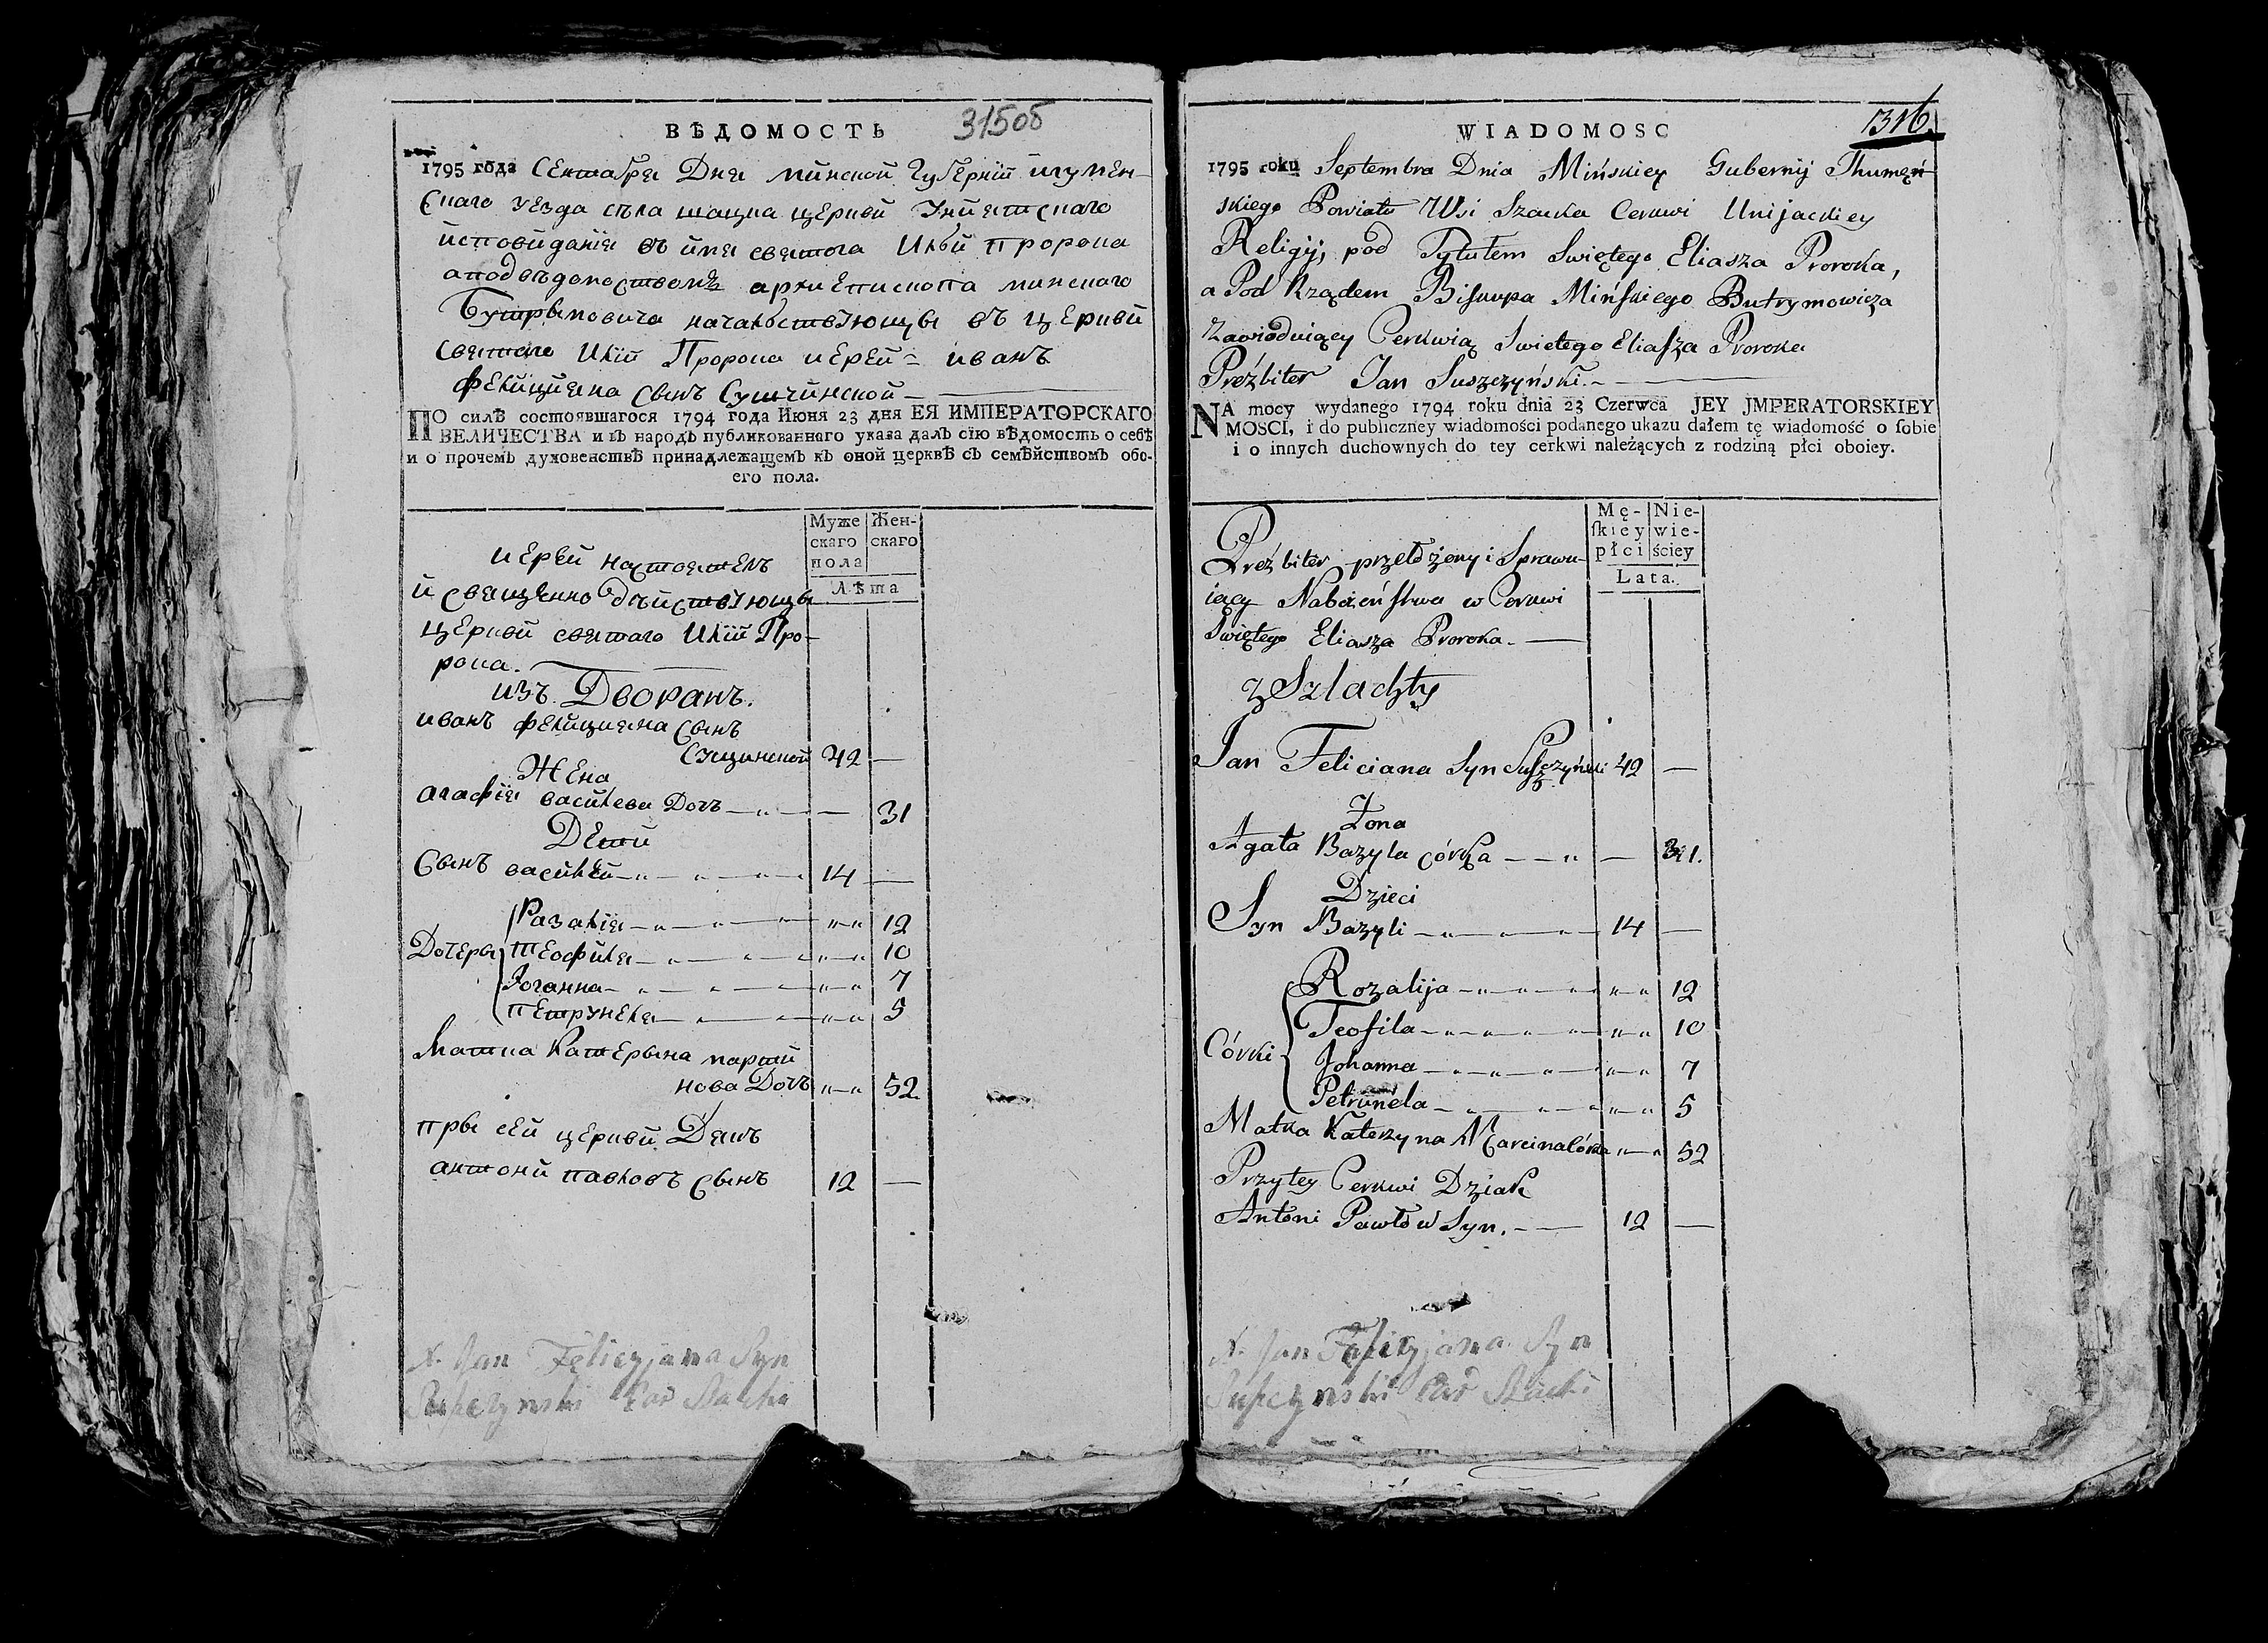 ВѢДОМОСТЬ 315об
1795 года Сентабря Дня минской Губерніи игумен-
скаго уезда села шацка церкви Унѝятскаго
исповиданія въ имя святога Ильи пророка
а подвѣдомством архиепископа минскаго
Бутрымовича начальствующы въ церкви
святаго Иліи Пророка иерей иванъ
фелициана сынъ Сущинской
ПО силѣ состоявшагося 1794 года Июня 23 дня ЕЯ ИМПЕРАТОРСКАГО
ВЕЛИЧЕСТВА и въ народъ публикованнаго указа далъ сїю вѣдомость о себѣ
и о прочемъ духовенствѣ принадлежащемъ къ оной церквѣ съ семѣйствомъ обо-
его пола.
Муже скаго пола Женскаго
Лѣта
иерей настоятель
и священнодѣйствующы
церкви святаго Иліи Про-
рока.
изъ Дворанъ.
иванъ фелициана сынъ
Сущинской 42 —
Жена
агафія васильева Дочъ — 31
Дети
Сынъ василей 14 —
Разалія 12
Дочеры теофиля 10
Іоганна 7
петрунеля 5
Матка Катерына марти
нова Дочъ 52
пры сей церкви Дякъ
антони павловъ сынъ 12 —
X. Jan Felicyjana Syn
Suszczynski Par Szacki
WIADOMOSC 316.
1795 roku Septembra Dnia Mińskiey Gubernij Ihumeń-
skiego Powiatu Wsi Szacka Cerkwi Unijackiey
Religij, pod Tytułem Swiętego Eliasza Proroka,
a Pod Rządem Biskupa Mińskiego Butrymowicza
Zawiodniący Cerkwią Swietego Eliasza Proroka
Preźbiter Jan Suszczyński.
NA mocy wydanego 1794 roku dnia 23 Czerwca JEY JMPERATORSKIEY
MOSCI, i do publiczney wiadomości podanego ukazu dałem tę wiadomość o sobie
i o innych duchownych do tey cerkwi należących z rodziną płci oboiey.
Mę-skiey płci Nie-wie-ściey
Lata.
Preźbiter przełożony i Sprawu-
iący Nabożeństwa w Cerkwi
Swiętego Eliasza Proroka.
z Szlachty
Jan Feliciana Syn Suszczyński 42 —
Żona
Agata Bazyla córka — 31.
Dzieci
Syn Bazyli 14 —
Rozalija 12
Teofila 10
Córki Johanna 7
Petrunela 5
Matka Katerzyna Marcinałówka 52
Przytey Cerkwi Dziak
Antoni Pawłow Syn. 12 —
X. Jan Felicyjana Syn
Suszczynski Par Szacki